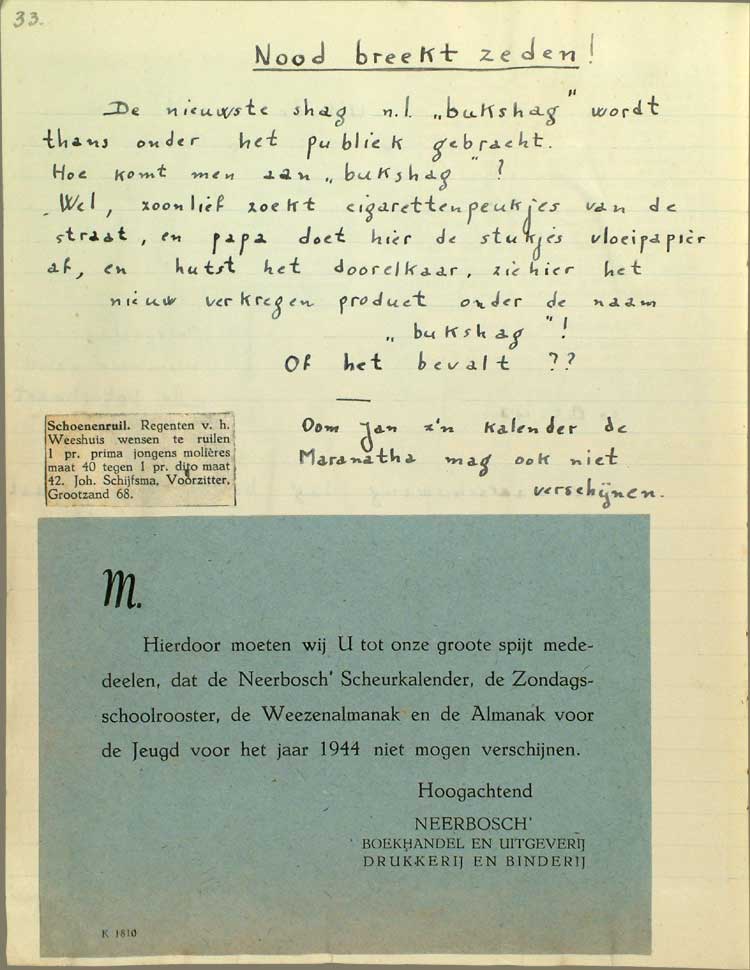 33.
Nood breekt zeden!
De nieuwste shag n.l. „bukshag" wordt
thans onder het publiek gebracht.
Hoe komt men aan „bukshag"?
Wel, zoonlief zoekt cigarettenpeukjes van de
straat, en papa doet hier de stukjes vloeipapier
af, en hutst het doorelkaar, ziehier het
nieuw verkregen product onder de naam
„bukshag"!
Of het bevalt ??
Schoenenruil. Regenten v. h.
Weeshuis wensen te ruilen
1 pr. prima jongens molières
maat 40 tegen 1 pr. dito maat
42. Joh. Schijfsma, Voorzitter,
Grootzand 68.
Oom Jan z'n kalender de
Maranatha mag ook niet
verschijnen.
M.
Hierdoor moeten wij U tot onze groote spijt mede-
deelen, dat de Neerbosch' Scheurkalender, de Zondags-
schoolrooster, de Weezenalmanak en de Almanak voor
de Jeugd voor het jaar 1944 niet mogen verschijnen.
Hoogachtend
NEERBOSCH'
BOEKHANDEL EN UITGEVERIJ
DRUKKERIJ EN BINDERIJ
K 1810